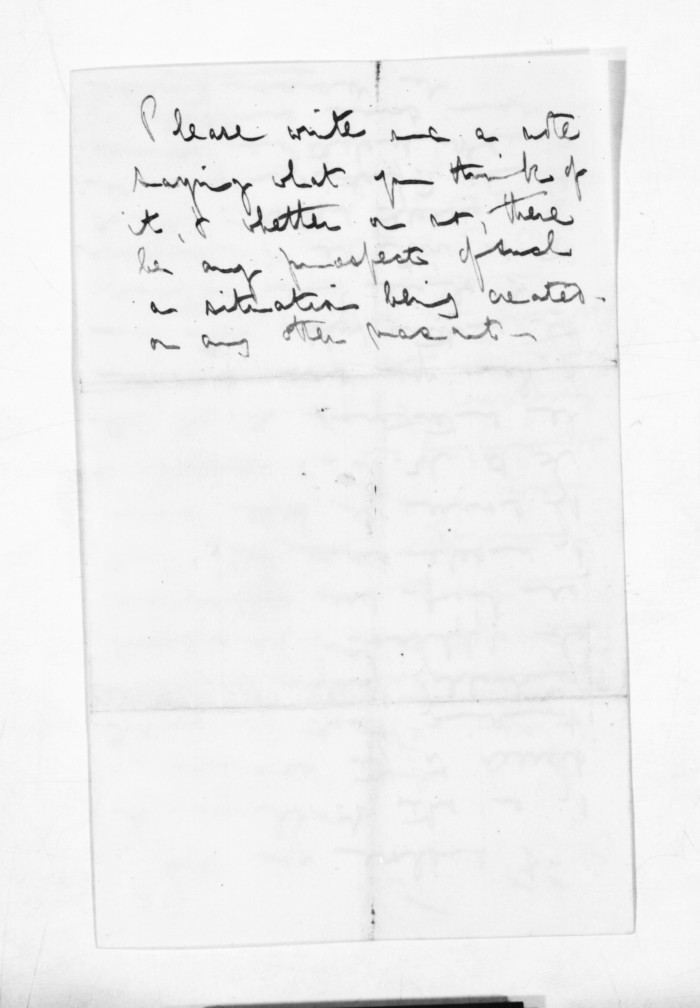 Please write me a note
saying what you think of
it, & whether or not, there
be any prospect of such
a situation being created -
on any other